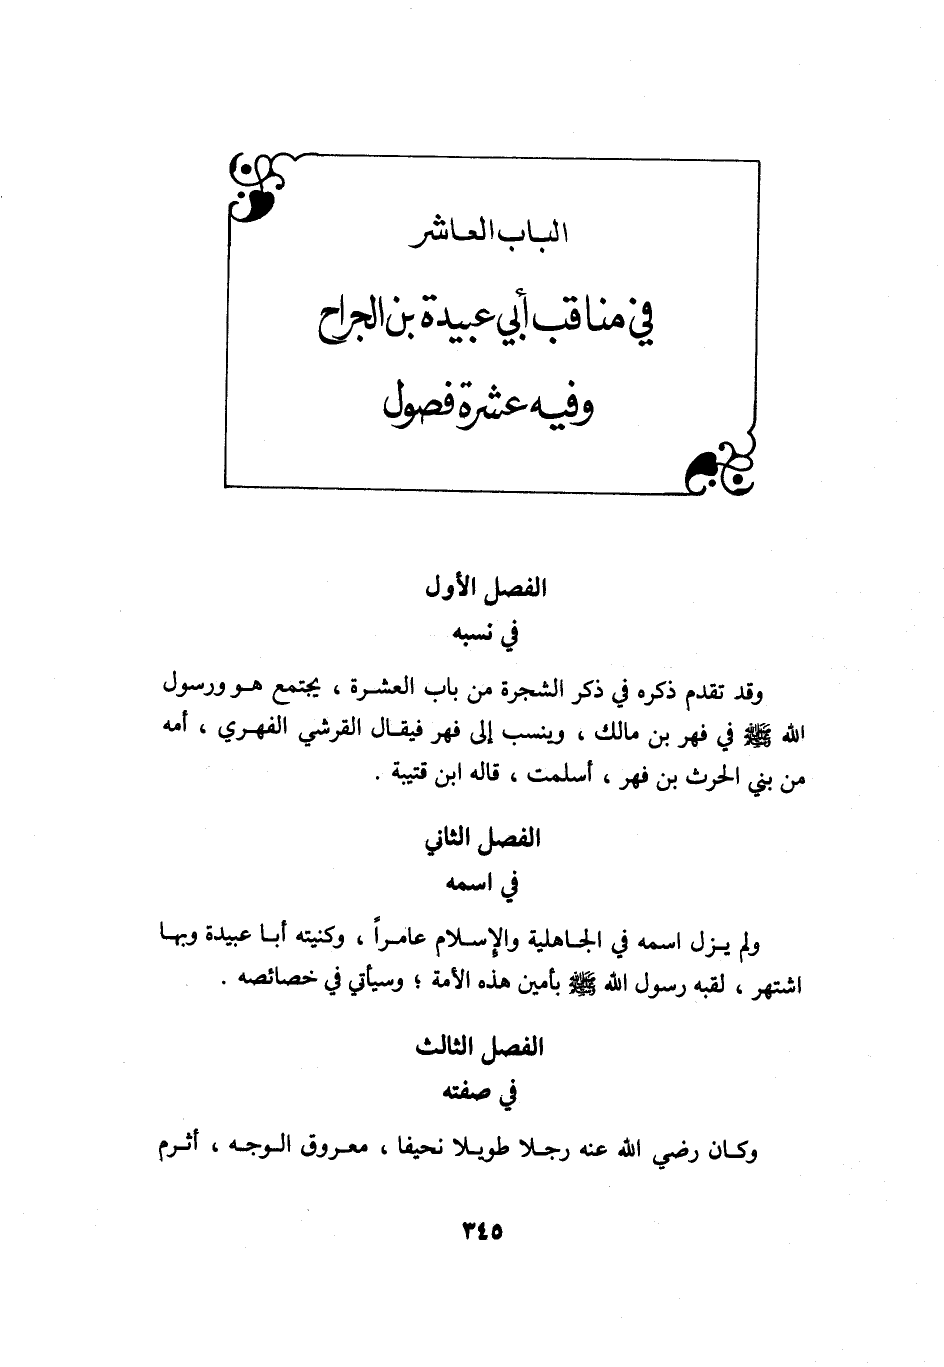 الباب العاشر
في مناقب أبي عبيدة بن الجراح
وفيه عشرة فصول
الفصل الأول
في نسبه
وقد تقدم ذكره في ذكر الشجرة من باب العشرة ، يجتمع هو ورسول
الله ﷺ في فهر بن مالك ، وينسب إلى فهر فيقال القرشي الفهري ، أمه
من بني الحرث بن فهر ، أسلمت ، قاله ابن قتيبة .
الفصل الثاني
في اسمه
ولم يزل اسمه في الجاهلية والإسلام عامراً ، وكنيته أبا عبيدة وبها
اشتهر ، لقبه رسول الله ﷺ بأمين هذه الأمة ؛ وسيأتي في خصائصه .
الفصل الثالث
في صفته
وكان رضي الله عنه رجلا طويلا نحيفا ، معروق الوجه ، أثرم
٣٤٥